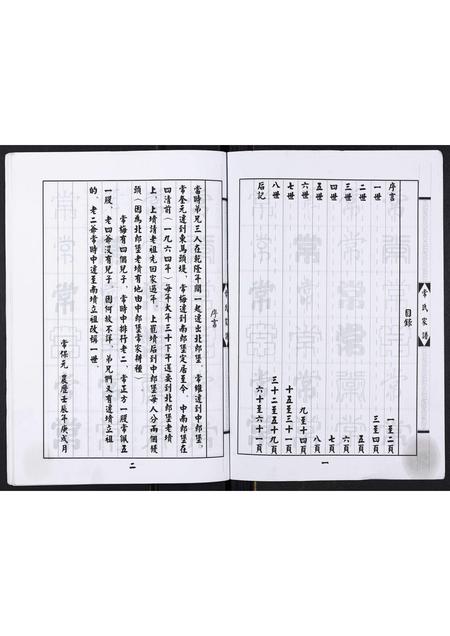 常氏家譜
目録
序言 一至二頁
一世 三至四頁
二世 五頁
三世 六頁
四世 七頁
五世 八頁
六世 九至十四頁
七世 十五至三十一頁
八世 三十二至五十九頁
后記 六十至六十一頁
一
常氏家譜
序言
當時弟兄三人在乾隆年間一起遷出北郎堡，常維遷到中郎堡，
常奎元遷到東馬頭堤，常梅遷到南郎堡定居至今，中南郎堡在
四清前（一九六四年）每年大年三十下午還要到北郎堡老墳
上，上墳請老祖先回家過年，上罷墳后到中郎堡每人分兩個饃
頭（因為北郎堡老墳有地由中郎堡常家耕種）
常梅有四個兒子，常時中排行老二，常正方一股常佩五
一股，老四爺沒有兒子，因何故不詳，弟兄們又有遷墳立祖
的，老二爺常時中遷至南墳立祖改稱一世，
常保元 農歷壬辰年庚戌月
二